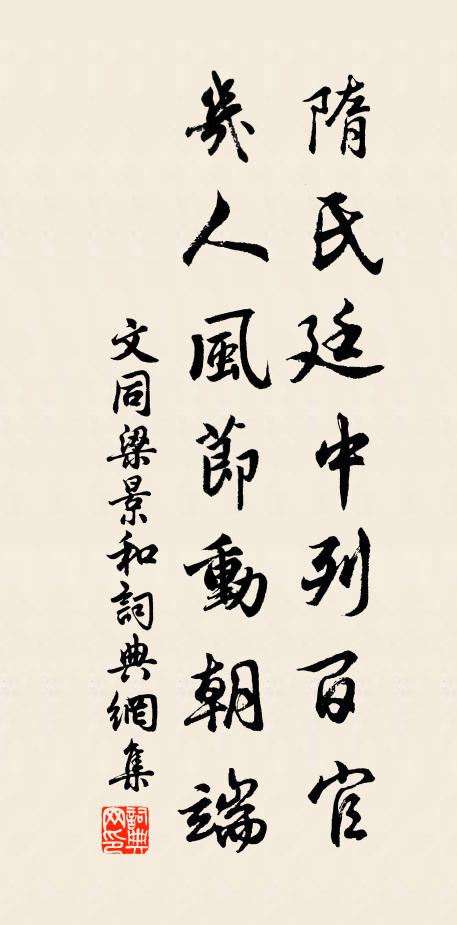 隋氏廷中列百官
幾人風節動朝端
文同梁景和詞典網集
詞典網印